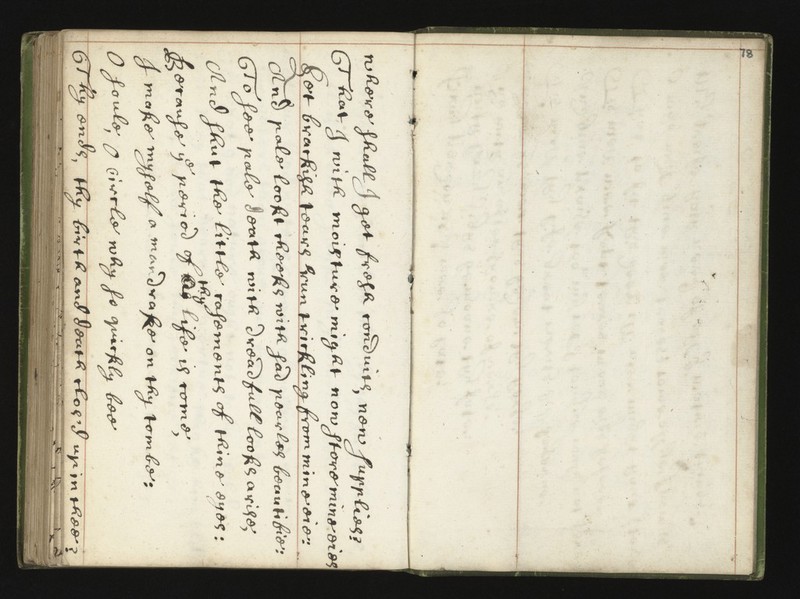 where shall I get fresh conduits, new supplies?
That I with moisture might now store mine eies
Let brackish tears run trickling from mine eie:
And pale lookt cheeks with sad pearles beautifie:
To see pale death with dreadfull looks arise;
And shut the little casements of thine eyes:
Because yᵉ period of thy life is come,
I make myself a mandrake on thy tombe:
O soule, O circle why so quickly bee
Thy ends, thy birth and death clos'd up in thee?
78